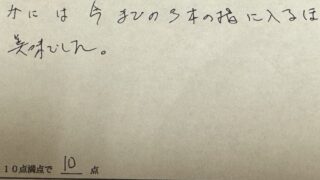 かには今までの3本の指に入るほ
美味でした。
10点満点で 10 点